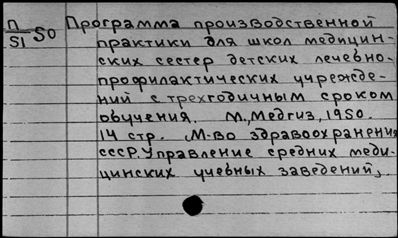 П
51 50 Программа производственной
практики для школ медицин-
ских сестер детских лечебно-
профилактических учрежде-
ний с трехгодичным сроком
обучения. М., Медгиз, 1950.
14 стр. М-во здравоохранения
СССР. Управление средних меди-
цинских учебных заведений,